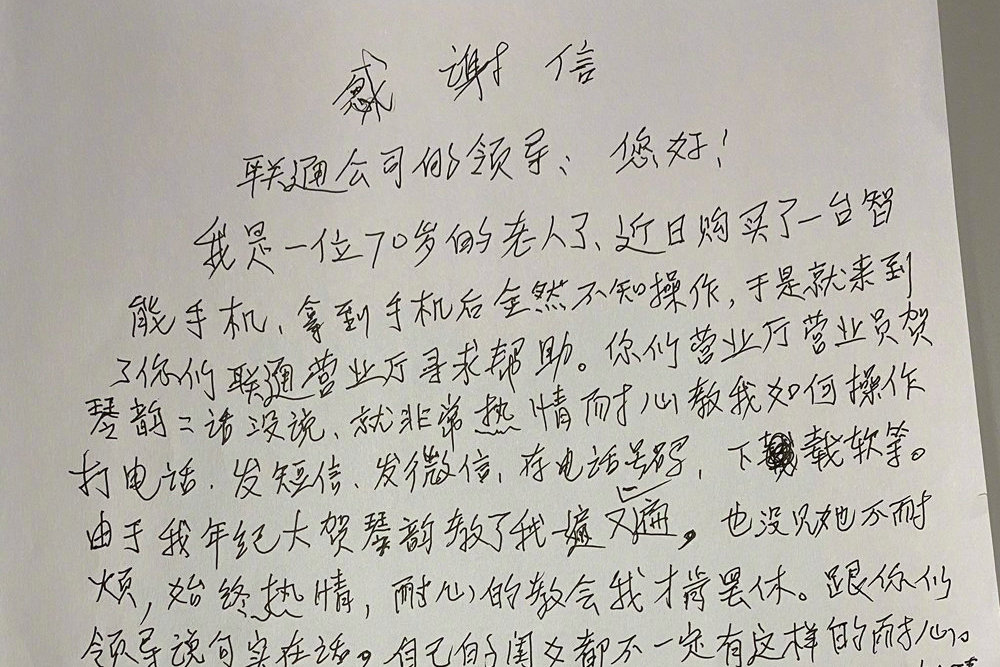 感谢信
联通公司的领导:您好!
我是一位70岁的老人了、近日购买了一台智
能手机,拿到手机后全然不知操作,于是就来到
了你们联通营业厅寻求帮助。你们营业厅营业员贺
琴韵二话没说、就非常热情而耐心教我如何操作
打电话、发短信、发微信,存电话号码,下载软等。
由于我年纪大贺琴韵教了我一遍又遍。也没见她不耐
烦,始终热情,耐心的教会我才肯罢休。跟你们
领导说句实在话。自己的闺女都不一定有这样的耐心。